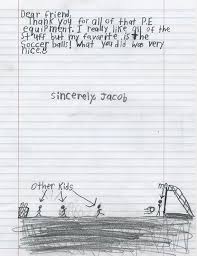 Dear friend,
Thank you for all of that P.E
equipment. I really like all of the
stuff but my favorite is the
Soccer balls! What you did was very
nice.
sincerely, Jacob
Other Kids